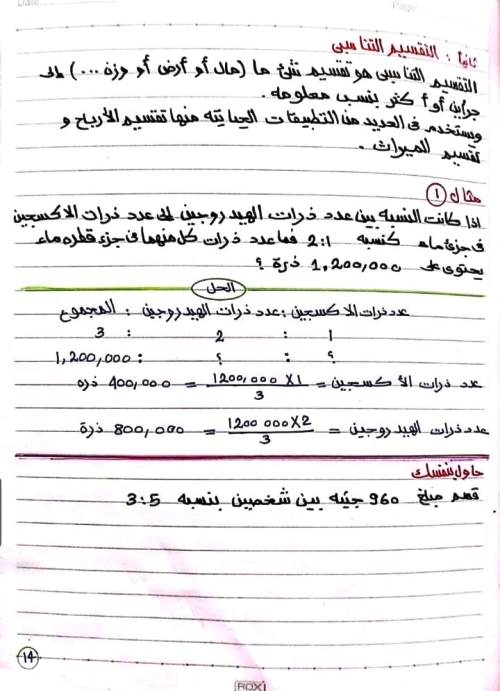 Date:
Page:
ثانياً : التقسيم التناسبى
التقسيم التناسبى هو تقسيم شئ ما (مال أو أرض أو وزن ...) إلى
جزأين أو أكثر بنسب معلومه .
ويستخدم فى العديد من التطبيقات الحياتيه منها تقسيم الأرباح و
تقسيم الميراث .
مثال ①
اذا كانت النسبه بين عدد ذرات الهيدروجين إلى عدد ذرات الاكسجين
فى جزئ ماء كنسبه 2:1 فما عدد ذرات كل منهما فى جزء قطره ماء
يحتوى على 1,200,000 ذرة ؟
الحل
عدد ذرات الاكسجين : عدد ذرات الهيدروجين : المجموع
1 : 2 : 3
؟ : ؟ : 1,200,000
عدد ذرات الأكسجين = 1200,000 X 1 / 3 = 400,000 ذره
عدد ذرات الهيدروجين = 1200 000 X 2 / 3 = 800,000 ذرة
حاول بنفسك
قسم مبلغ 960 جنيه بين شخصين بنسبه 3:5
14
ROX